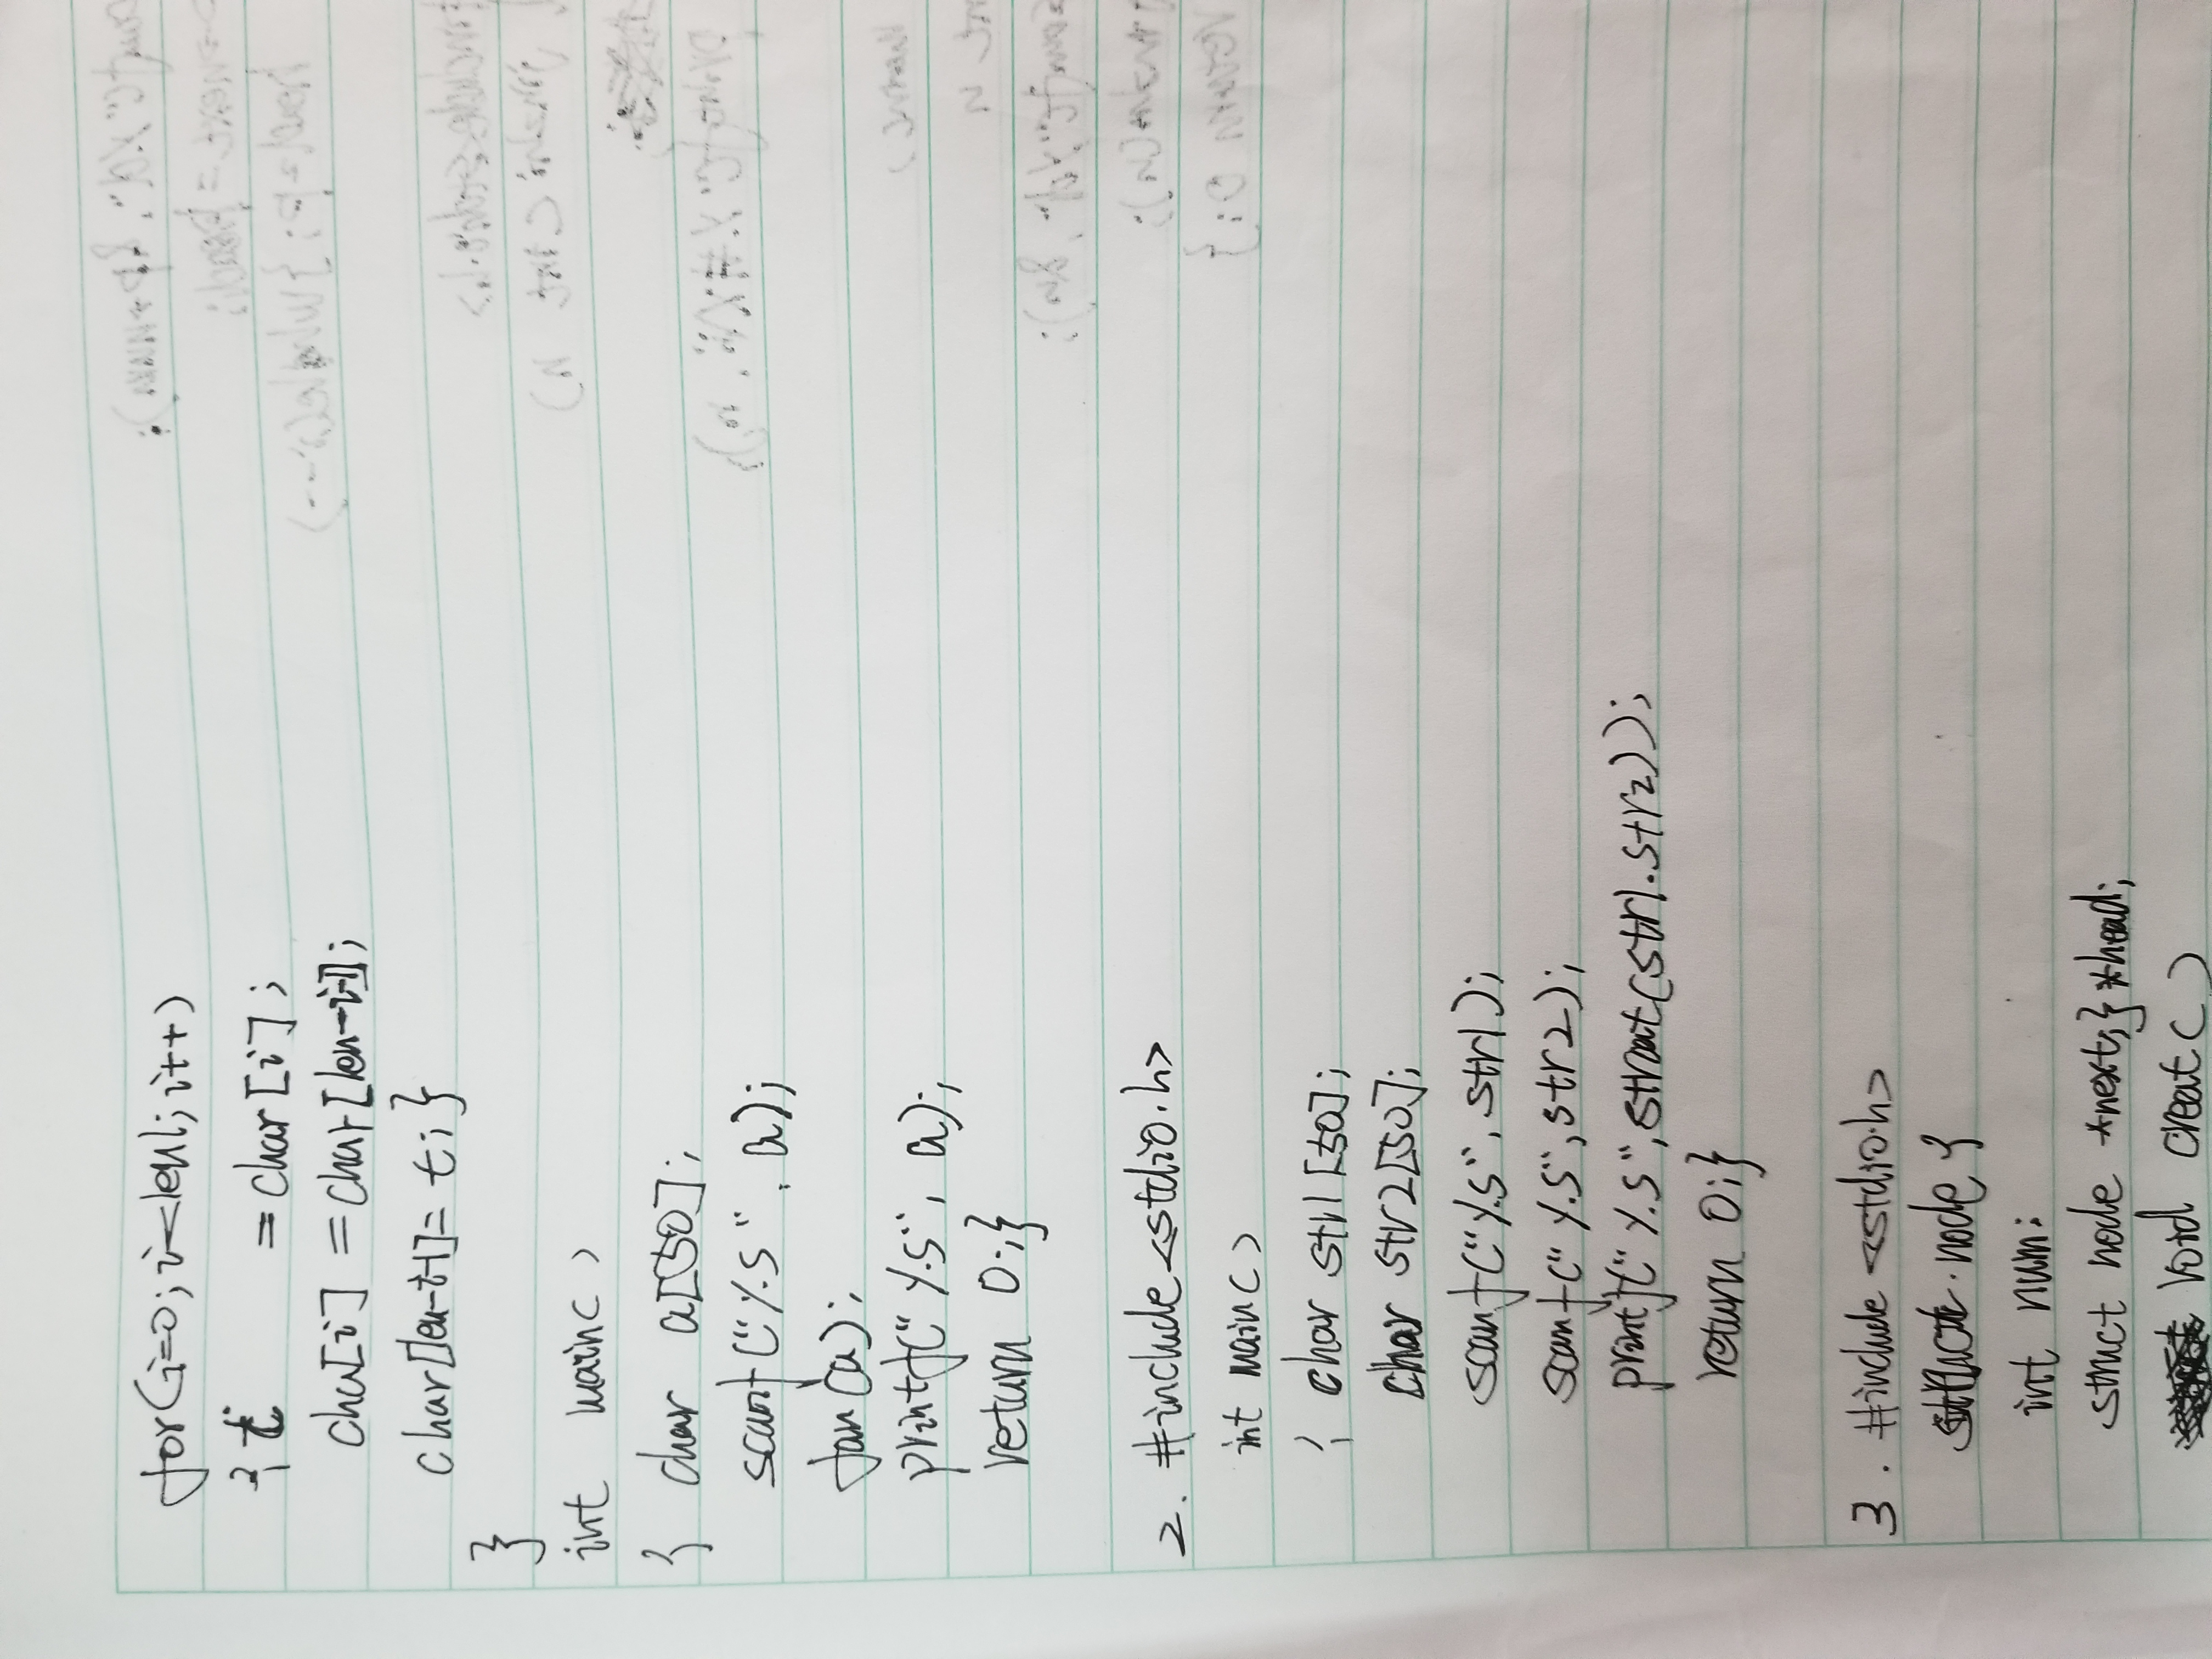 for(i=0; i<len1; i++)
{ t = char[i];
cha[i] = char[len-i-1];
char[len-i-1]= t; }
}
int main()
{ char a[50];
scanf("%s", a);
fan(a);
printf("%s", a);
return 0;}
2. #include<stdio.h>
int main()
{ char str1[50];
char str2[50];
scanf("%s", str1);
scanf("%s",str2);
printf("%s",strcat(str1.str2));
return 0;}
3. #include <stdio.h>
struct node {
int num;
struct node *next;}*head;
void creat()